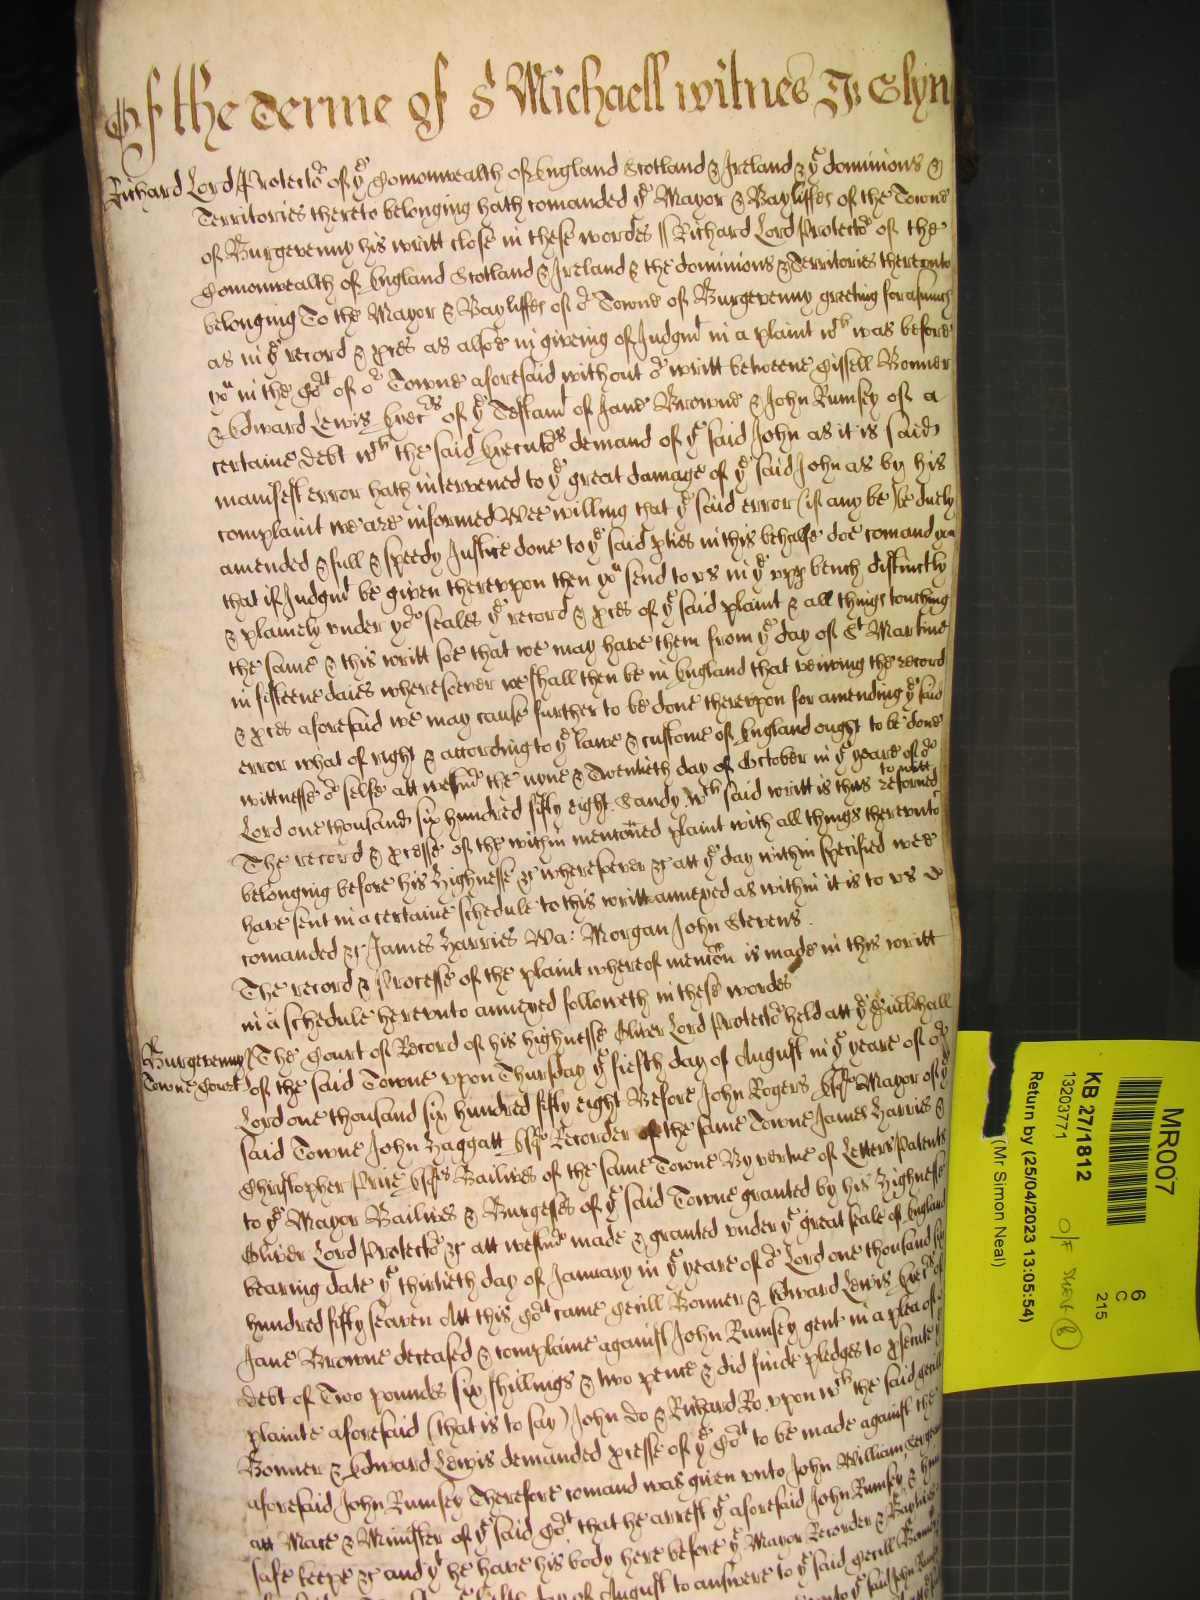 Of the Terme of St Michaell witnes Jo Glyn
Richard Lord Protector of ye Comonwealth of England Scotland & Ireland & ye dominions &
Territories thereto belonging hath comanded ye Mayor & Bayliffes of the Towne
of Burgevenny his writt close in these wordes // Richard Lord Protector of the
Comonwealth of England Scotland & Ireland & the dominions & Territories thereunto
belonging To the Mayor & Bayliffes of or Towne of Burgevenny greeting forasmuch
as in ye record & pces as alsoe in giveing of Judgmt in a plaint wch was before
you in the Cort of or Towne aforesaid without or writt betweene Gissell Bonner
& Edward Lewis Exectrs of ye Testamt of Jane Browne & John Rumsey of a
certaine debt wch the said Executors demand of ye said John as it is said
manifest error hath intervened to ye great damage of ye said John as by his
complaint we are informed Wee willing that ye said error (if any be) be duely
amended & full & speedy Justice done to ye said pties in this behalfe doe comand you
that if Judgmt be given thereupon then you send to us in ye upp bench distinctly
& plainely under yor seales ye record & pces of ye said plaint & all things touching
the same & this writt soe that we may have them from ye day of St Martine
in fifteene daies wheresoever we shall then be in England that veiwing the record
& pces aforesaid we may cause further to be done thereupon for amending ye said
error what of right & according to ye lawe & custome of England ought to be done
wittnesse or selfe att Westmr the nyne & Twentieth day of October in ye yeare of or
Lord one thousand six hundred fifty eight. Sandy wch said writt is thus retorned to witt
The record & pcesse of the within mentoned plaint with all things thereunto
belonging before his Highnesse &c wheresoever &c att ye day within specified wee
have sent in a certaine schedule to this writt annexed as within it is to us
comanded &c James Harries Wa: Morgan John Stevens.
The record & Processe of the plaint whereof mencon is made in this writt
in a schedule hereunto annexed followeth in these wordes
Burgevenny
Towne Court
The Court of Record of his highnesse Oliver Lord Protector held att ye Guildhall
of the said Towne upon Thursday ye fiefth day of August in ye yeare of or
Lord one thousand six hundred fifty eight Before John Rogers Esqr Mayor of ye
said Towne John Haggatt Esqr Recorder of the same Towne James Harries &
Christopher Price Esqrs Bailives of the same Towne By vertue of Letters Patents
to ye Mayor Bailives & Burgesses of ye said Towne granted by his Highnesse
Oliver Lord Protector &c att Westmr made & granted under ye great seale of England
bearing date ye thirtieth day of January in ye yeare of or Lord one thousand six
hundred fifty seaven Att this Cort came Gecill Bonner & Edward Lewis Exectrs of
Jane Browne deceased & complaine against John Rumsey gent in a plea of
debt of Two poundes six shillings & two pence & did finde pledges to psecute ye
plainte aforesaid (that is to say) John Do & Richard Ro. upon wch the said Gecill
Bonner & Edward Lewis demanded pcesse of ye Cort to be made against the
aforesaid John Rumsey Therefore comand was given unto John William Sergeant
att Mace & Minister of ye said Cort that he arrest ye aforesaid John Rumsey & him
safe keepe &c and yt he have his body here before ye Mayor Recorder & Baylives
day of August to answere to ye said Gecill Bonner
to ye said John
MR007
KB 27/1812
13203771
Return by (25/04/2023 13:05:54)
(Mr Simon Neal)
6
C
215
O/F